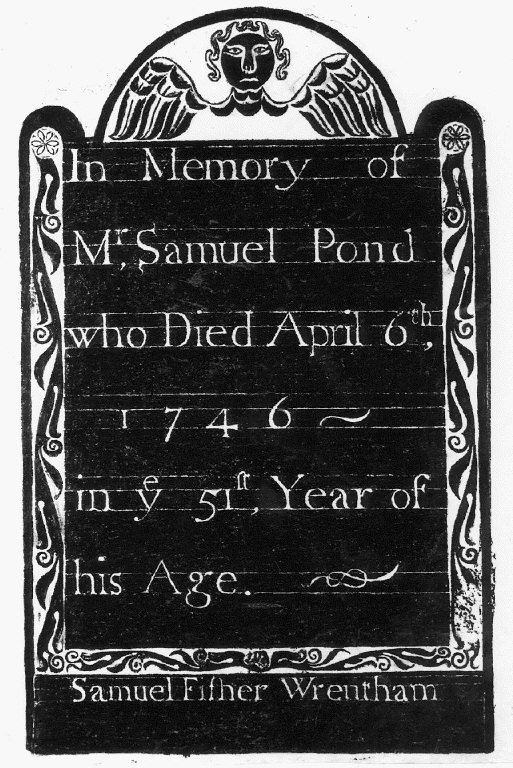 In Memory of
Mr. Samuel Pond
who Died April 6th,
1746
in ye 51st, Year of
his Age.
Samuel Fiſher Wrentham